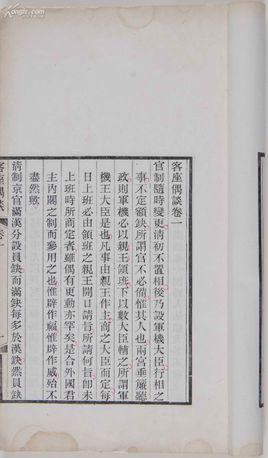 客座偶談卷一
官制隨時變更清初不置相後乃設軍機大臣行相之
事不定額缺所謂官不必備惟其人也兩宮垂簾聽
政則軍機必以親王領班下以數大臣輔之所謂軍
機王大臣是也凡事由親王作主商之大臣而定每
日上班必由領班之親王開口請旨所請何旨卽未
上班時所商定者雖偶有更動亦罕矣是合外國君
主內閣之制而參用之也惟辟作福惟辟作威殆不
盡然歟
清制京官滿漢分設員缺而滿缺每多於漢缺然員缺
客座偶談
卷一
一